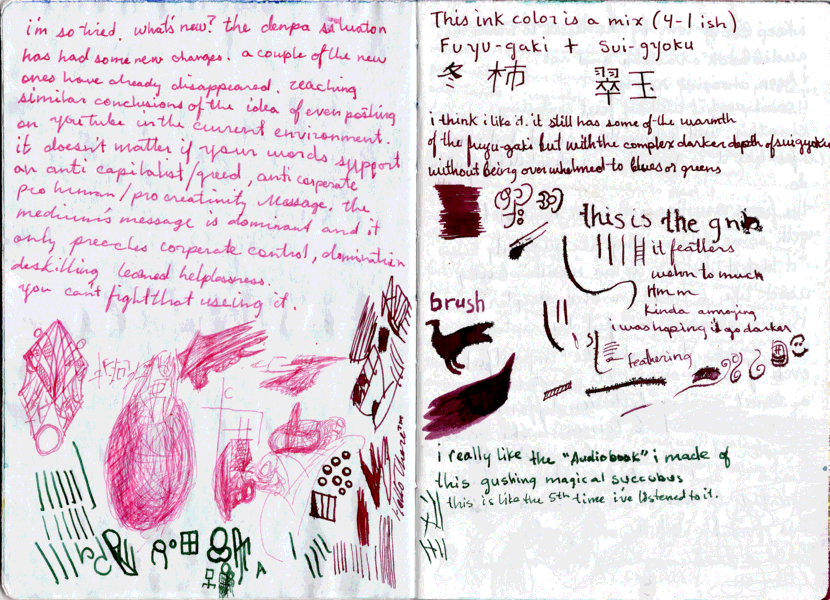 i'm so tired. what's new? the denpa situation
has had some new changes. a couple of the new
ones have already disappeared. reaching
similar conclusions of the idea of even posting
on youtube in the current environment.
it doesn't matter if your words support
an anti capitalist/greed, anti corporate
pro human/pro creativity message. the
medium's message is dominant and it
only preaches corporate control, domination
deskilling learned helplessness.
you cant fight that useing it.
This ink color is a mix (4-1 ish)
Fuyu-gaki + sui-gyoku
冬 柿 翠玉
i think i like it. it still has some of the warmth
of the fuyu-gaki but with the complex darker depth of suigyoku
without being overwhelmed to blues or greens
this is the
it feathers
wehn to much
Hmm
Kinda annoying
i was hoping it go darker
feathering
brush
i really like the "Audiobook" i made of
this gushing magical succubus
this is like the 5th time i've listened to it.